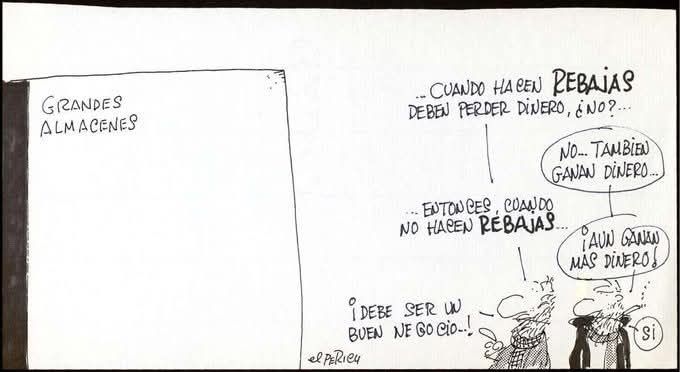 GRANDES
ALMACENES
...CUANDO HACEN REBAJAS
DEBEN PERDER DINERO, ¿NO?...
NO... TAMBIEN
GANAN DINERO...
...ENTONCES, CUANDO
NO HACEN REBAJAS...
¡AUN GANAN
MAS DINERO!
¡DEBE SER UN
BUEN NEGOCIO...!
SI
el PERICH